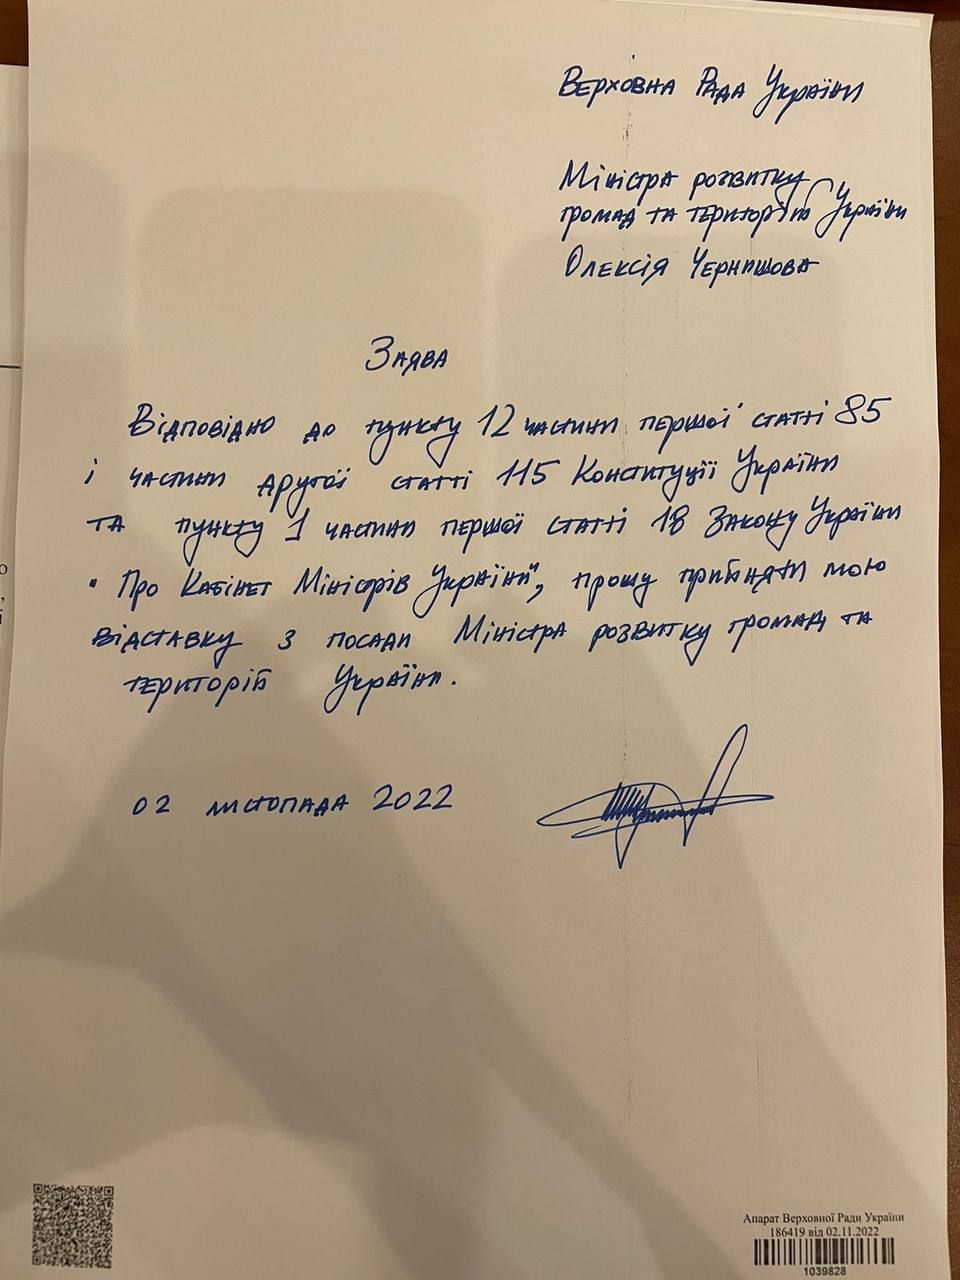 Верховна Рада України
Міністра розвитку
громад та територій України
Олексія Чернишова
Заява
Відповідно до пункту 12 частини першої статті 85
і частини другої статті 115 Конституції України
та пункту 1 частини першої статті 18 Закону України
"Про Кабінет Міністрів України", прошу прийняти мою
відставку з посади Міністра розвитку громад та
територій України.
02 листопада 2022
Апарат Верховної Ради України
186419 від 02.11.2022
1039828